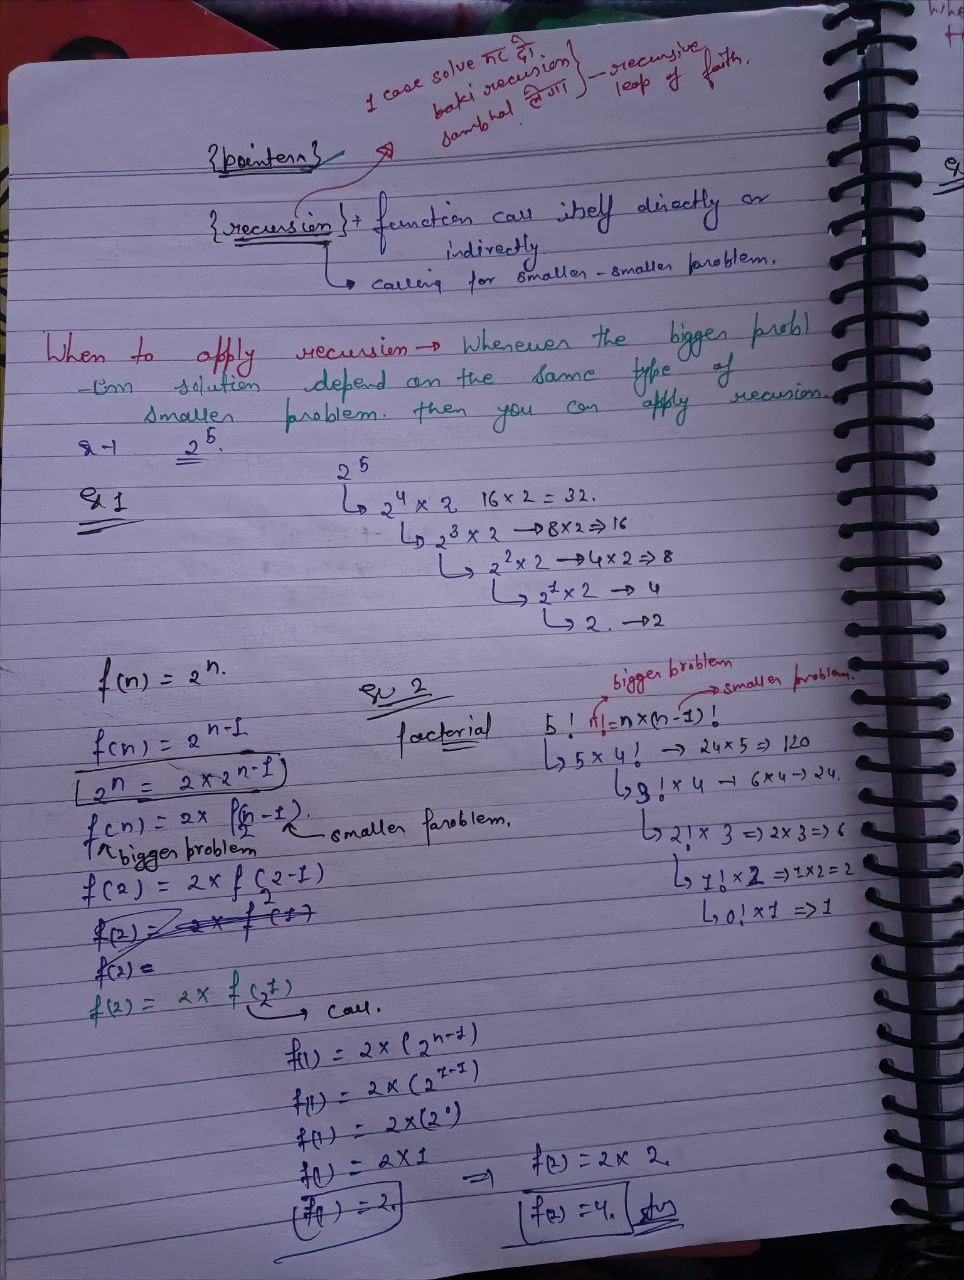 1 case solve कर दो.
baki recusion
sambhal लेगा } – recursive
leap of faith.
{pointern}
{recursion} → function call itself directly or
indirectly
↳ calling for smaller - smaller problem.
When to apply recursion → Whenever the bigger probl
-em solution depend on the same type of
smaller problem. then you can apply recusion.
2⁵.
Q 1
2⁵
↳ 2⁴ × 2 16 × 2 = 32.
↳ 2³ × 2 → 8×2 ⇒ 16
↳ 2² × 2 → 4 × 2 ⇒ 8
↳ 2¹ × 2 → 4
↳ 2. → 2
f(n) = 2ⁿ.
f(n) = 2ⁿ⁻¹
2ⁿ = 2 × 2ⁿ⁻¹
f(n) = 2× f(n-1). ← smaller problem.
↑ bigger problem
f(2) = 2× f(2-1)
f(2) =
f(2) = 2× f(2¹)
↳ call.
f(1) = 2× (2ⁿ⁻¹)
f(1) = 2× (2¹⁻¹)
f(1) = 2×(2⁰)
f(1) = 2×1
f(1) = 2.
⇒ f(2) = 2× 2.
f(2) = 4. Ans
Qu 2
factorial
bigger problem
→ smaller problem.
5! n! = n×(n-1)!
↳ 5 × 4! → 24×5 ⇒ 120
↳ 3! × 4 → 6×4 → 24.
↳ 2! × 3 ⇒ 2×3 ⇒ 6
↳ 1! × 2 ⇒ 1×2 = 2
↳ 0! × 1 ⇒ 1